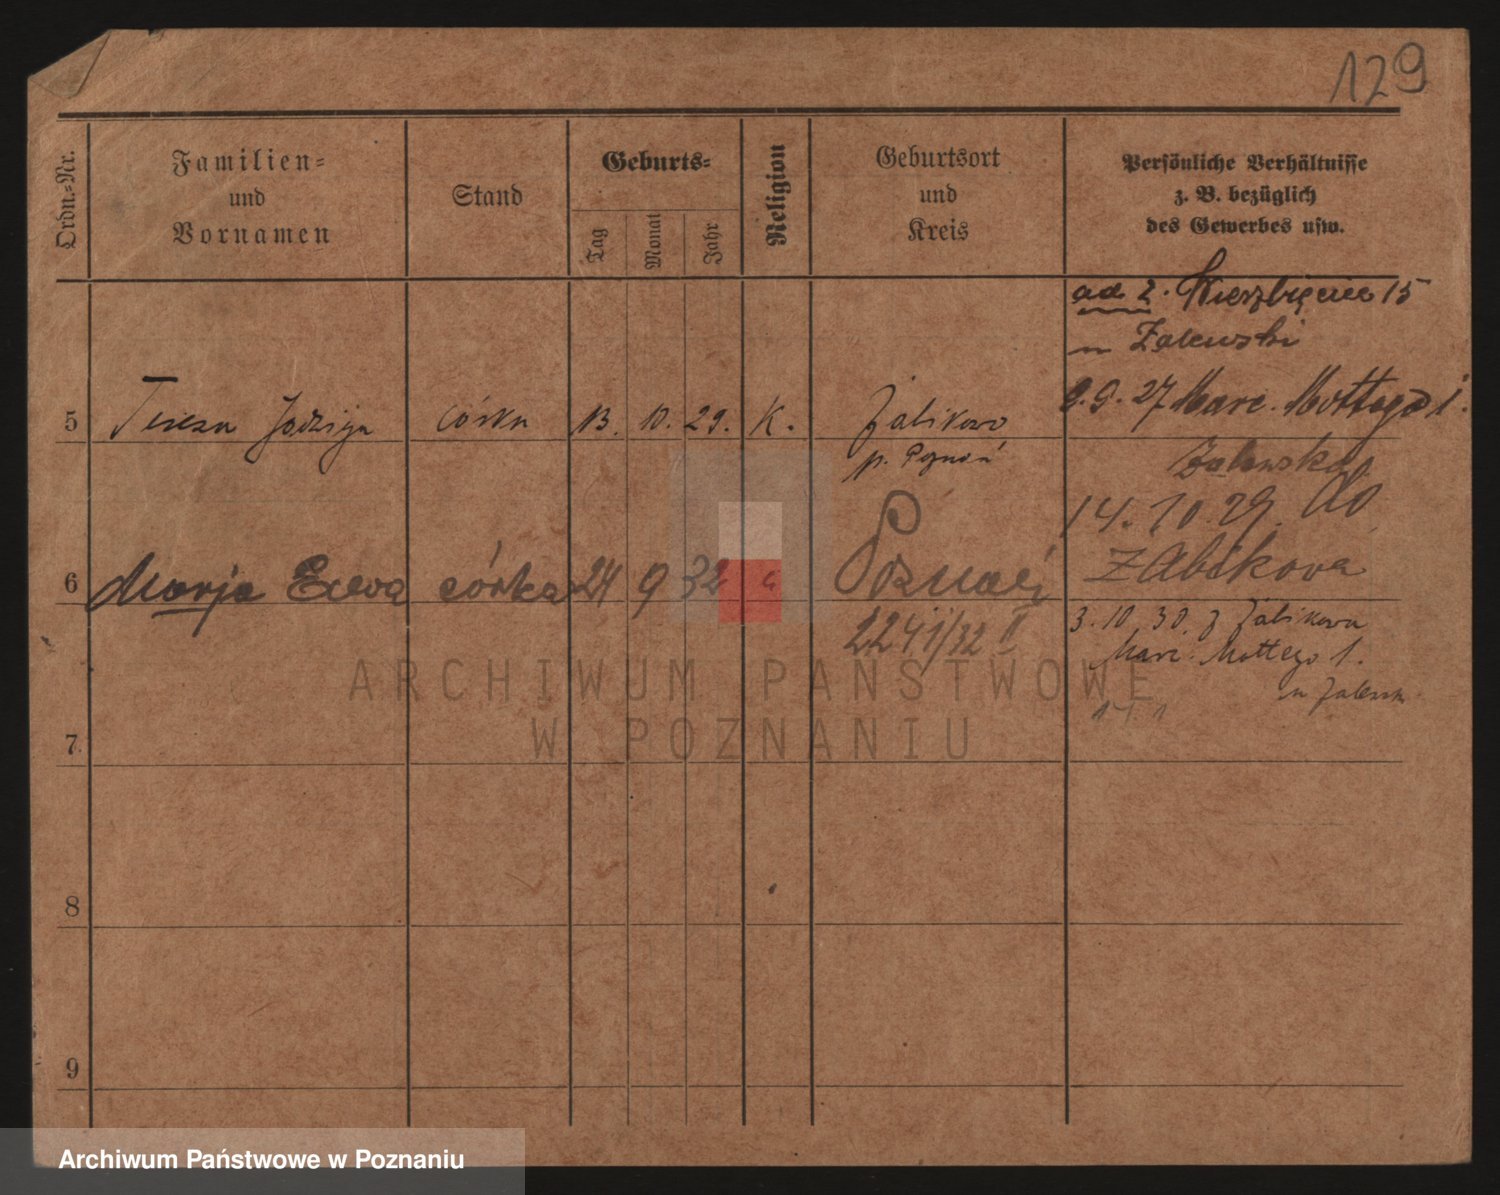 129
Ordn.-Nr.
Familien-
und
Vornamen
Stand
Geburts-
Tag
Monat
Jahr
Religion
Geburtsort
und
Kreis
Persönliche Verhältnisse
z. B. bezüglich
des Gewerbes usw.
ad 2. Wierzbięcice 15
Zalewski
9.9.27 Marc. Mottego 1.
Zalewska
5 Teresa Jadwiga córka 13. 10. 29. K. Żabikowo
p. Poznań
14.10.29. do
Żabikova
6 Marja Ewa córka 24 9 32 Poznań
2241/32 II
3.10.30. z Żabikowa
Marc. Mottego 1.
7
8
9
ARCHIWUM PAŃSTWOWE
W POZNANIU
Archiwum Państwowe w Poznaniu